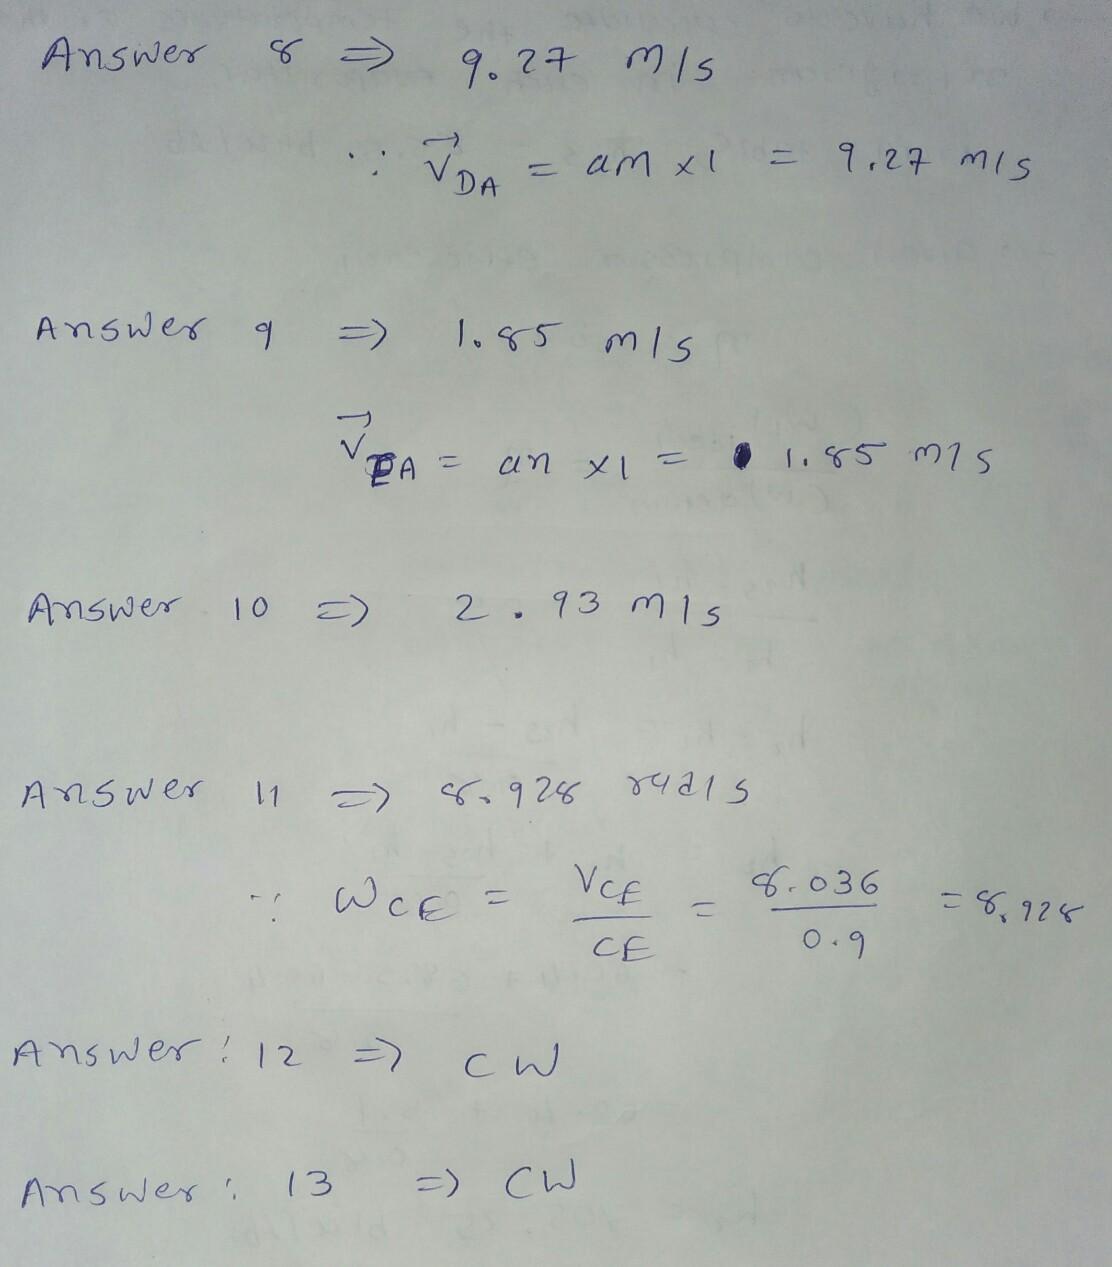 Answer 8 ⇒ 9.27 m/s
∵ V⃗DA = am x1 = 9.27 m/s
Answer 9 ⇒ 1.85 m/s
V⃗EA = an x1 = 1.85 m/s
Answer 10 ⇒ 2.93 m/s
Answer 11 ⇒ 8.928 rad/s
∵ WCE = VCE / CE = 8.036 / 0.9 = 8.928
Answer: 12 ⇒ CW
Answer: 13 ⇒ CW